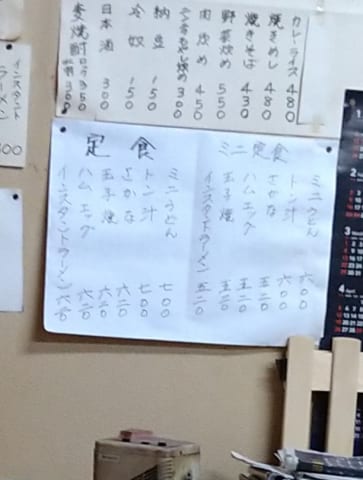 カレーライス 480
焼きめし 480
焼きそば 430
野菜炒め 550
肉炒め 450
300
納豆 150
冷奴 150
日本酒 300
麦焼酎 ロック 350
インスタント
ラーメン
ミニ定食
ミニうどん 六〇〇
トン汁 六〇〇
さかな 五二〇
ハムエッグ 五二〇
玉子焼 五二〇
インスタントラーメン 五二〇
定食
ミニうどん 七〇〇
トン汁 七〇〇
さかな 六二〇
玉子焼 六二〇
ハムエッグ 六二〇
インスタントラーメン 六二〇